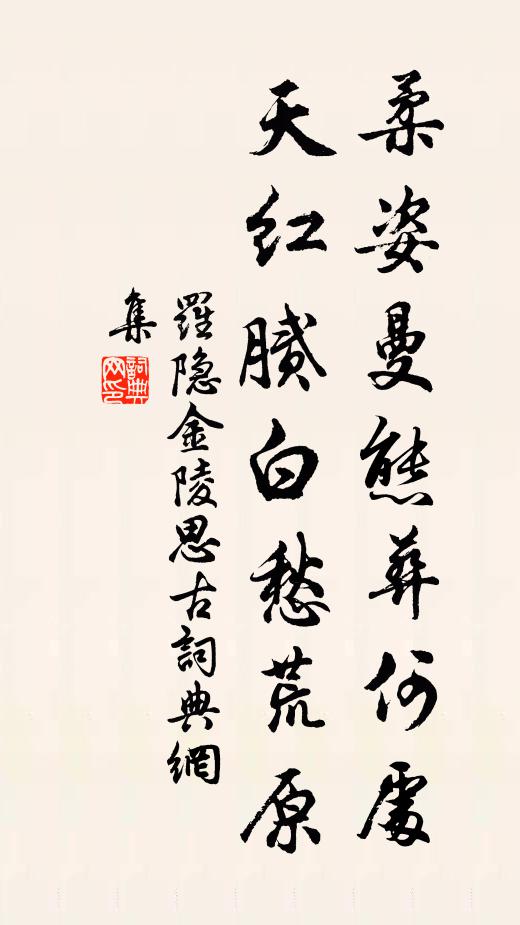 柔姿曼態葬何處
天紅膩白愁荒原
羅隐金陵思古詞典網
集
詞典
网印